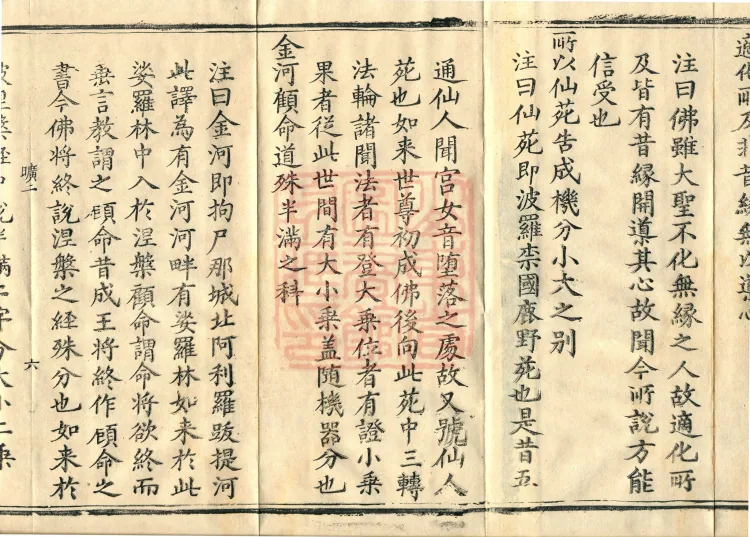 適化所及非昔緣無以導心
注曰佛雖大聖不化無縁之人故適化所
及皆有昔縁開導其心故聞今所說方能
信受也
所以仙苑告成機分小大之别
注曰仙苑即波羅柰國鹿野苑也是昔五
通仙人聞宫女音堕落之處故又號仙人
苑也如来世尊初成佛後向此苑中三轉
法輪諸聞法者有登大乗位者有證小乗
果者從此世間有大小乗盖随機器分也
金河顧命道殊半滿之科
注曰金河即拘尸那城北阿利羅跋提河
此譯為有金河河畔有娑羅林如来於此
娑羅林中入於涅槃顧命謂命将欲終而
垂言教謂之顧命昔成王将終作顧命之
書今佛将終說涅槃之經殊分也如来於
曠二 六
涅槃經中說半滿二字分大小二乗